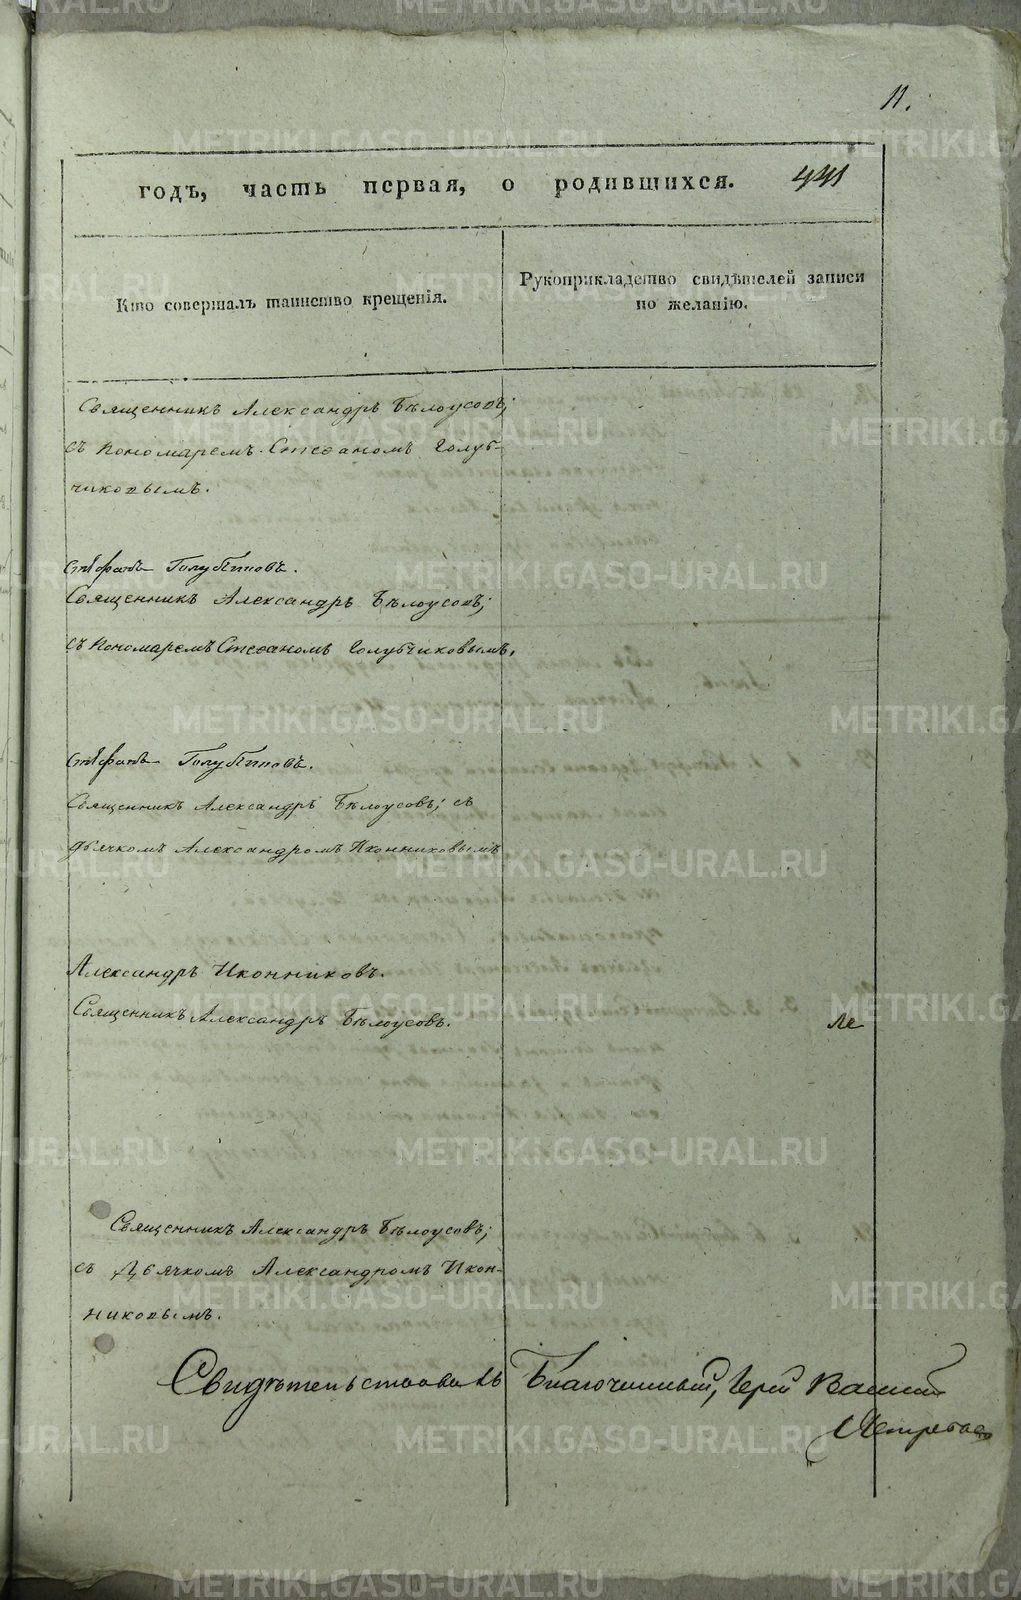 11.
годъ, часть первая, о родившихся. 441
Кто совершалъ таинство крещенія.
Рукоприкладство свидѣтелей записи
по желанію.
Священникъ Александръ Бѣлоусовъ;
съ Пономаремъ Стефаномъ Голуб-
чиковымъ.
Стефанъ Голубчиковъ.
Священникъ Александръ Бѣлоусовъ;
съ Пономаремъ Стефаномъ Голубчиковымъ.
Стефанъ Голубчиковъ.
Священникъ Александръ Бѣлоусовъ; съ
дьячкомъ Александромъ Иконниковымъ
Александръ Иконниковъ.
Священникъ Александръ Бѣлоусовъ.
Священникъ Александръ Бѣлоусовъ;
съ Дьячкомъ Александромъ Икон-
никовымъ.
Свидѣтельствовалъ Благочинный, Іерей
METRIKI.GASO-URAL.RU